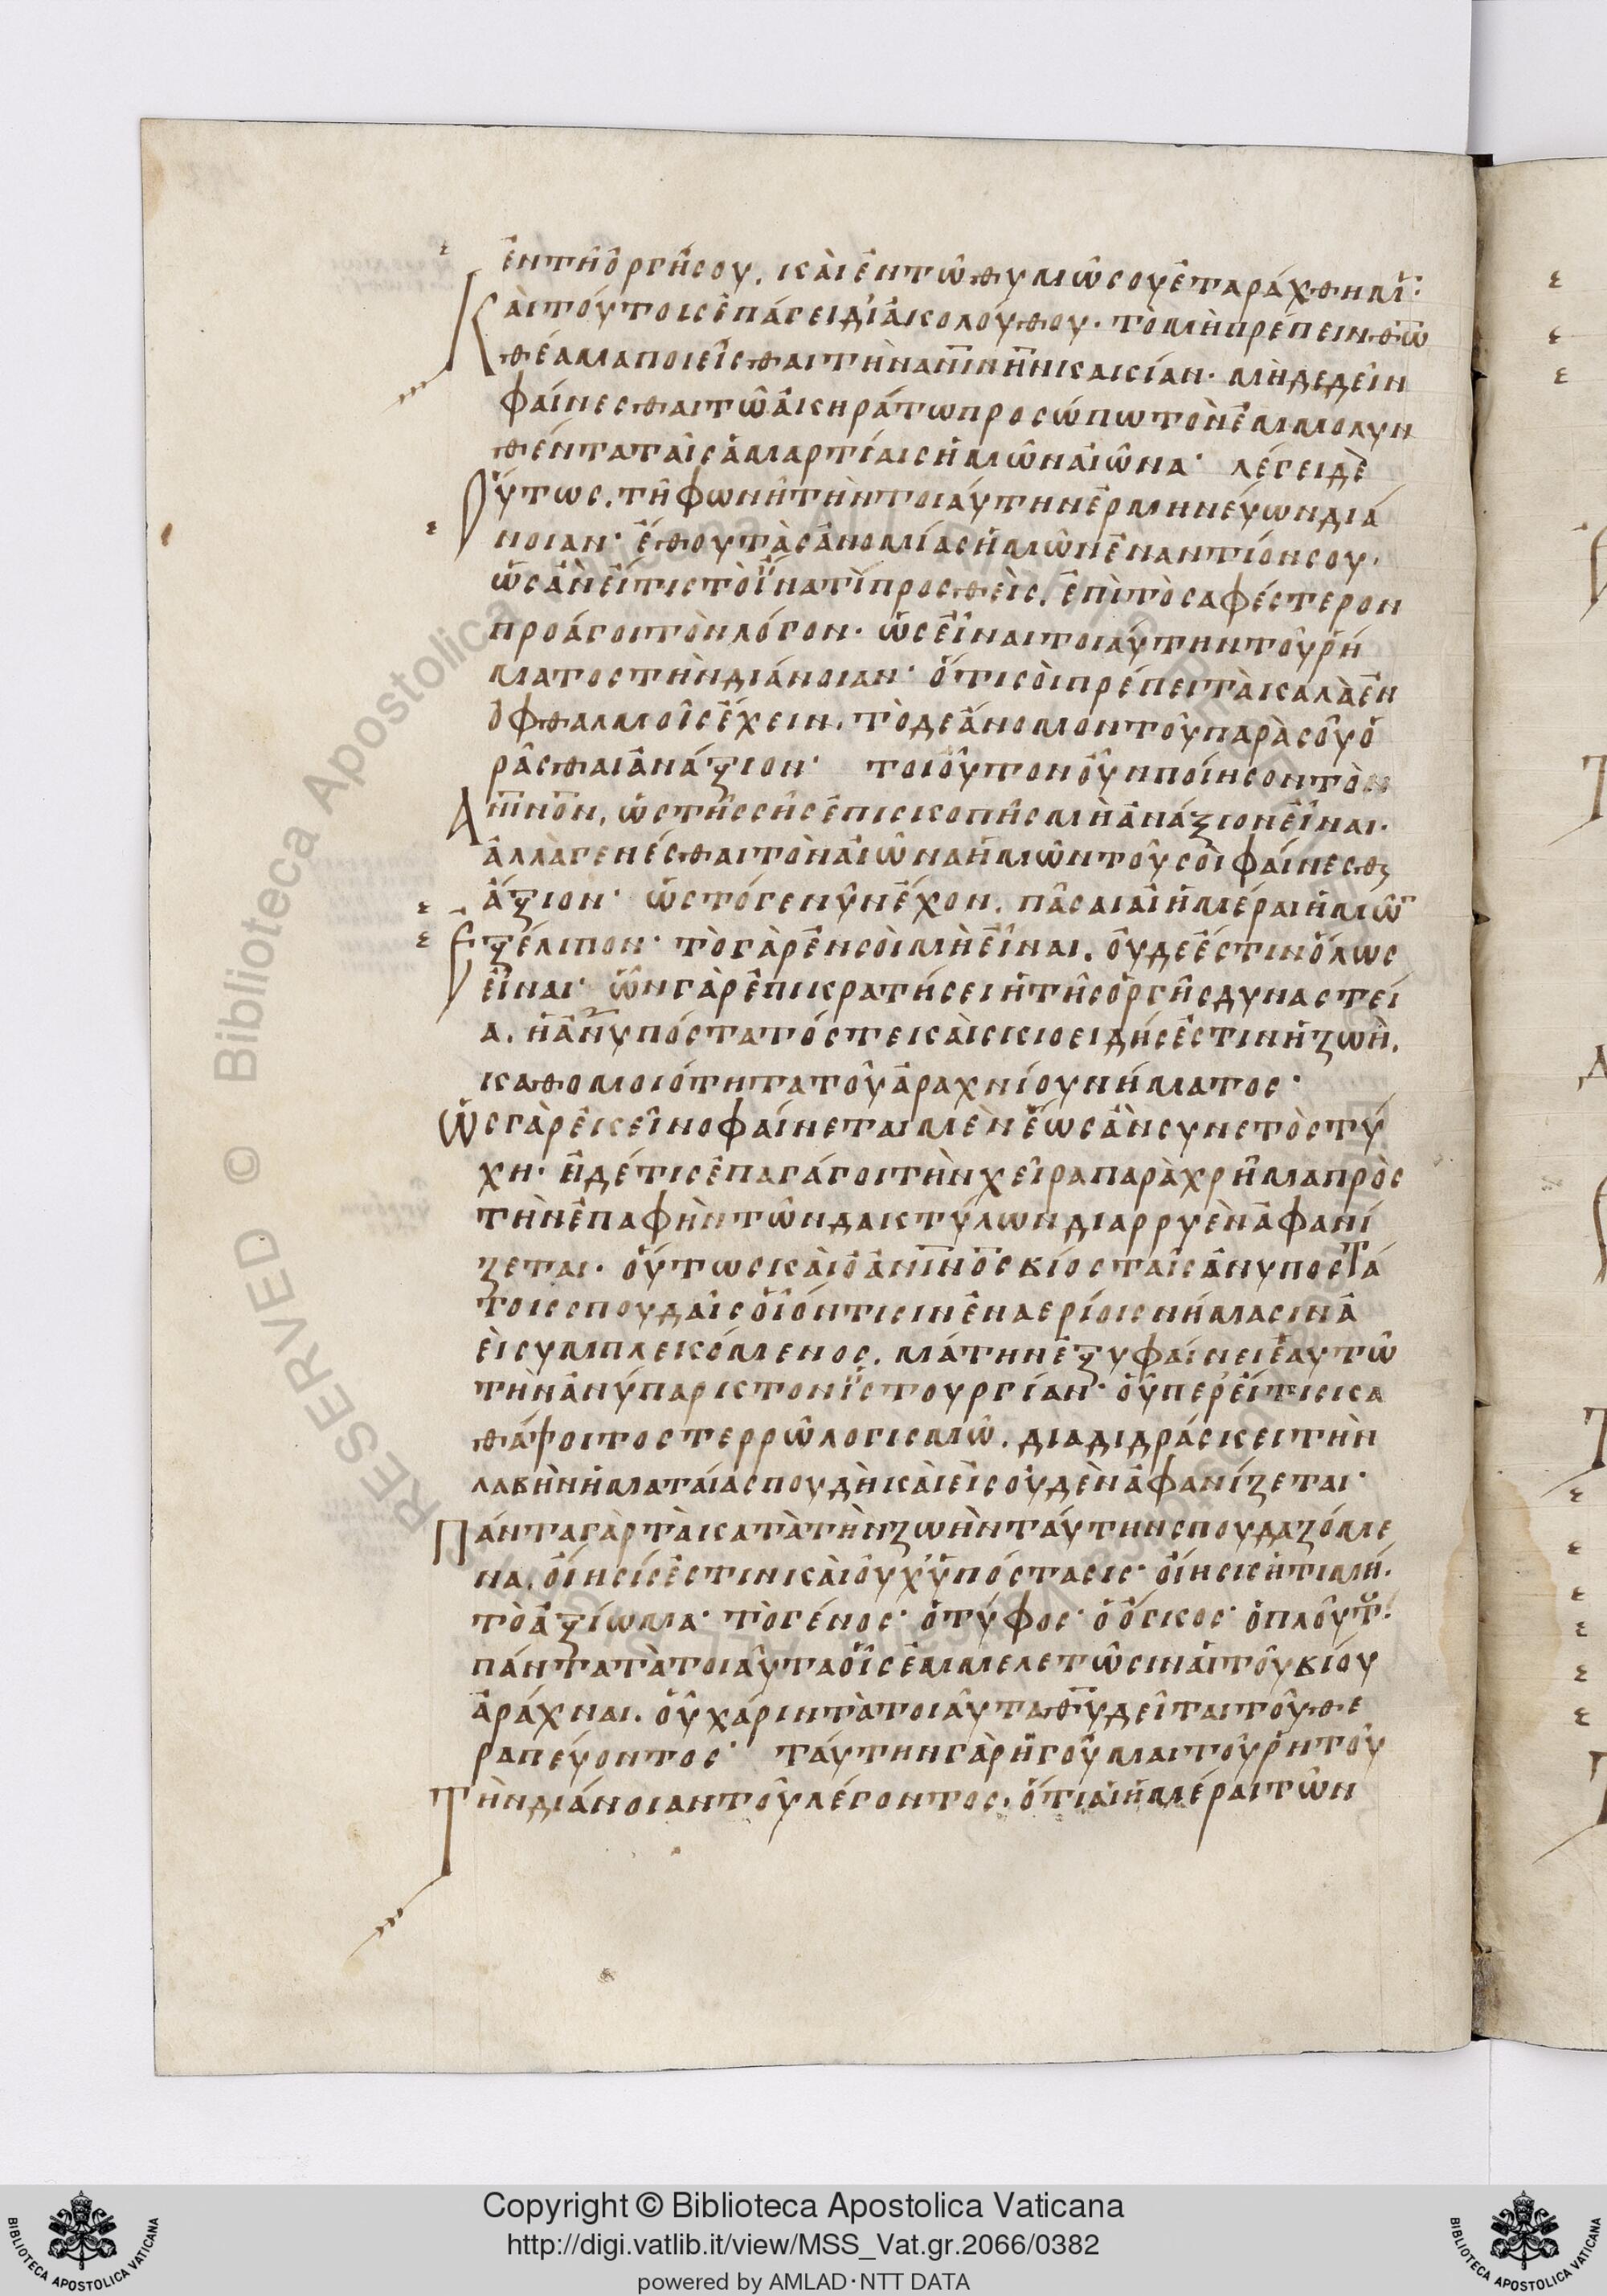 ἐν τῆ ὀργῆ σου, καὶ ἐν τῶ θυμῶ σου ἐταράχθημ̅·
Καὶ τούτοις ἐπάγει δι' ἀκολούθου· τὸ μὴ πρέπειν θ̅ω̅
θέαμα ποιεῖσθαι τὴν α̅ν̅ι̅ν̅η̅ν κακίαν· μὴ δὲ δεῖν
φαίνεσθαι τῶ ἀκηράτω προσώπω τὸν ἐμμολυν
θέντα ταῖς ἁμαρτίαις ἡμῶν αἰῶνα· λέγει δὲ
Οὕτως, τῆ φωνῆ τὴν τοιαύτην ἑρμηνεύων διά
νοιαν· ἔθου τὰς ἀνομίας ἡμῶν ἐναντίον σου,
ὡς ἂν εἴ τις τὸ ἱνατὶ προσθεὶς, ἐπὶ τὸ σαφέστερον
προάγοι τὸν λόγον· ὡς εἶναι τοιαύτην τοῦ ῥή
ματος τὴν διάνοιαν· ὅτι σοὶ πρέπει τὰ καλὰ ἐν
ὀφθαλμοῖς ἔχειν, τὸ δὲ ἄνομον τοῦ παρὰ σοῦ ὁ
ρᾶσθαι ἀνάξιον· τοιοῦτον οὖν ποίησον τὸν
Α̅ν̅ι̅ν̅ο̅ν, ὡς τῆς σῆς ἐπισκοπῆς μὴ ἀνάξιον εἶναι·
ἀλλὰ γενέσθαι τὸν αἰῶνα ἡμῶν τοῦ σοὶ φαίνεσθαι
ἄξιον· ὡς τό γε νῦν ἔχον, πᾶσαι αἱ ἡμέραι ἡμῶ̅
Ἐξέλιπον· τὸ γὰρ ἐν σοὶ μὴ εἶναι, οὐδὲ ἔστιν ὅλως
εἶναι· ὧν γὰρ ἐπικρατήσει ἡ τῆς ὀργῆς δυναστεί
α, ἡ ἀνυπόστατός τε καὶ σκιοειδής ἐστιν ἡ ζωὴ,
καθ' ὁμοιότητα τοῦ ἀραχνίου νήματος·
Ὡς γὰρ ἐκεῖνο φαίνεται μὲν ἕως ἂν συνεστὸς τύ
χη· ἢ δέ τις ἐπαγάγοι τὴν χεῖρα παρὰ χρῆμα πρὸς
τὴν ἐπαφὴν τῶν δακτύλων διαρρυὲν ἀφανί
ζεται· οὕτως καὶ ὁ ἀ̅ν̅ι̅ν̅ο̅ς βίος ταῖς ἀνυποστά
τοις σπουδαῖς οἱόν τισιν ἐναερίοις νήμασιν ἀ
εὶ συμπλεκόμενος, μάτην ἐξυφαίνει ἑαυτῶ
τὴν ἀνύπαρκτον ἱστουργίαν· οὗπερ εἴ τις κα
θάψοιτο στερρῶ λογισμῶ, διαδιδράσκει τὴν
λαβὴν ἡ ματαία σπουδὴ καὶ εἰς οὐδὲν ἀφανίζεται·
Πάντα γὰρ τὰ κατὰ τὴν ζωὴν ταύτην σπουδαζόμε
να, οἴησίς ἐστιν καὶ οὐχ' ὑπόστασις· οἴησις ἡ τιμή,
τὸ ἀξίωμα· τὸ γένος· ὁ τύφος· ὁ ὄγκος· ὁ πλοῦτο·
πάντα τὰ τοιαῦτα οἷς ἐμμελετῶσιν αἱ τοῦ βίου
ἀράχναι, οὗ χάριν τὰ τοιαῦτα θ̅υ̅ δεῖται τοῦ θε
ραπεύοντος· ταύτην γὰρ ἡγοῦμαι τοῦ ῥητοῦ
Τὴν διάνοιαν τοῦ λέγοντος, ὅτι αἱ ἡμέραι τῶν
Copyright © Biblioteca Apostolica Vaticana
http://digi.vatlib.it/view/MSS_Vat.gr.2066/0382
powered by AMLAD·NTT DATA